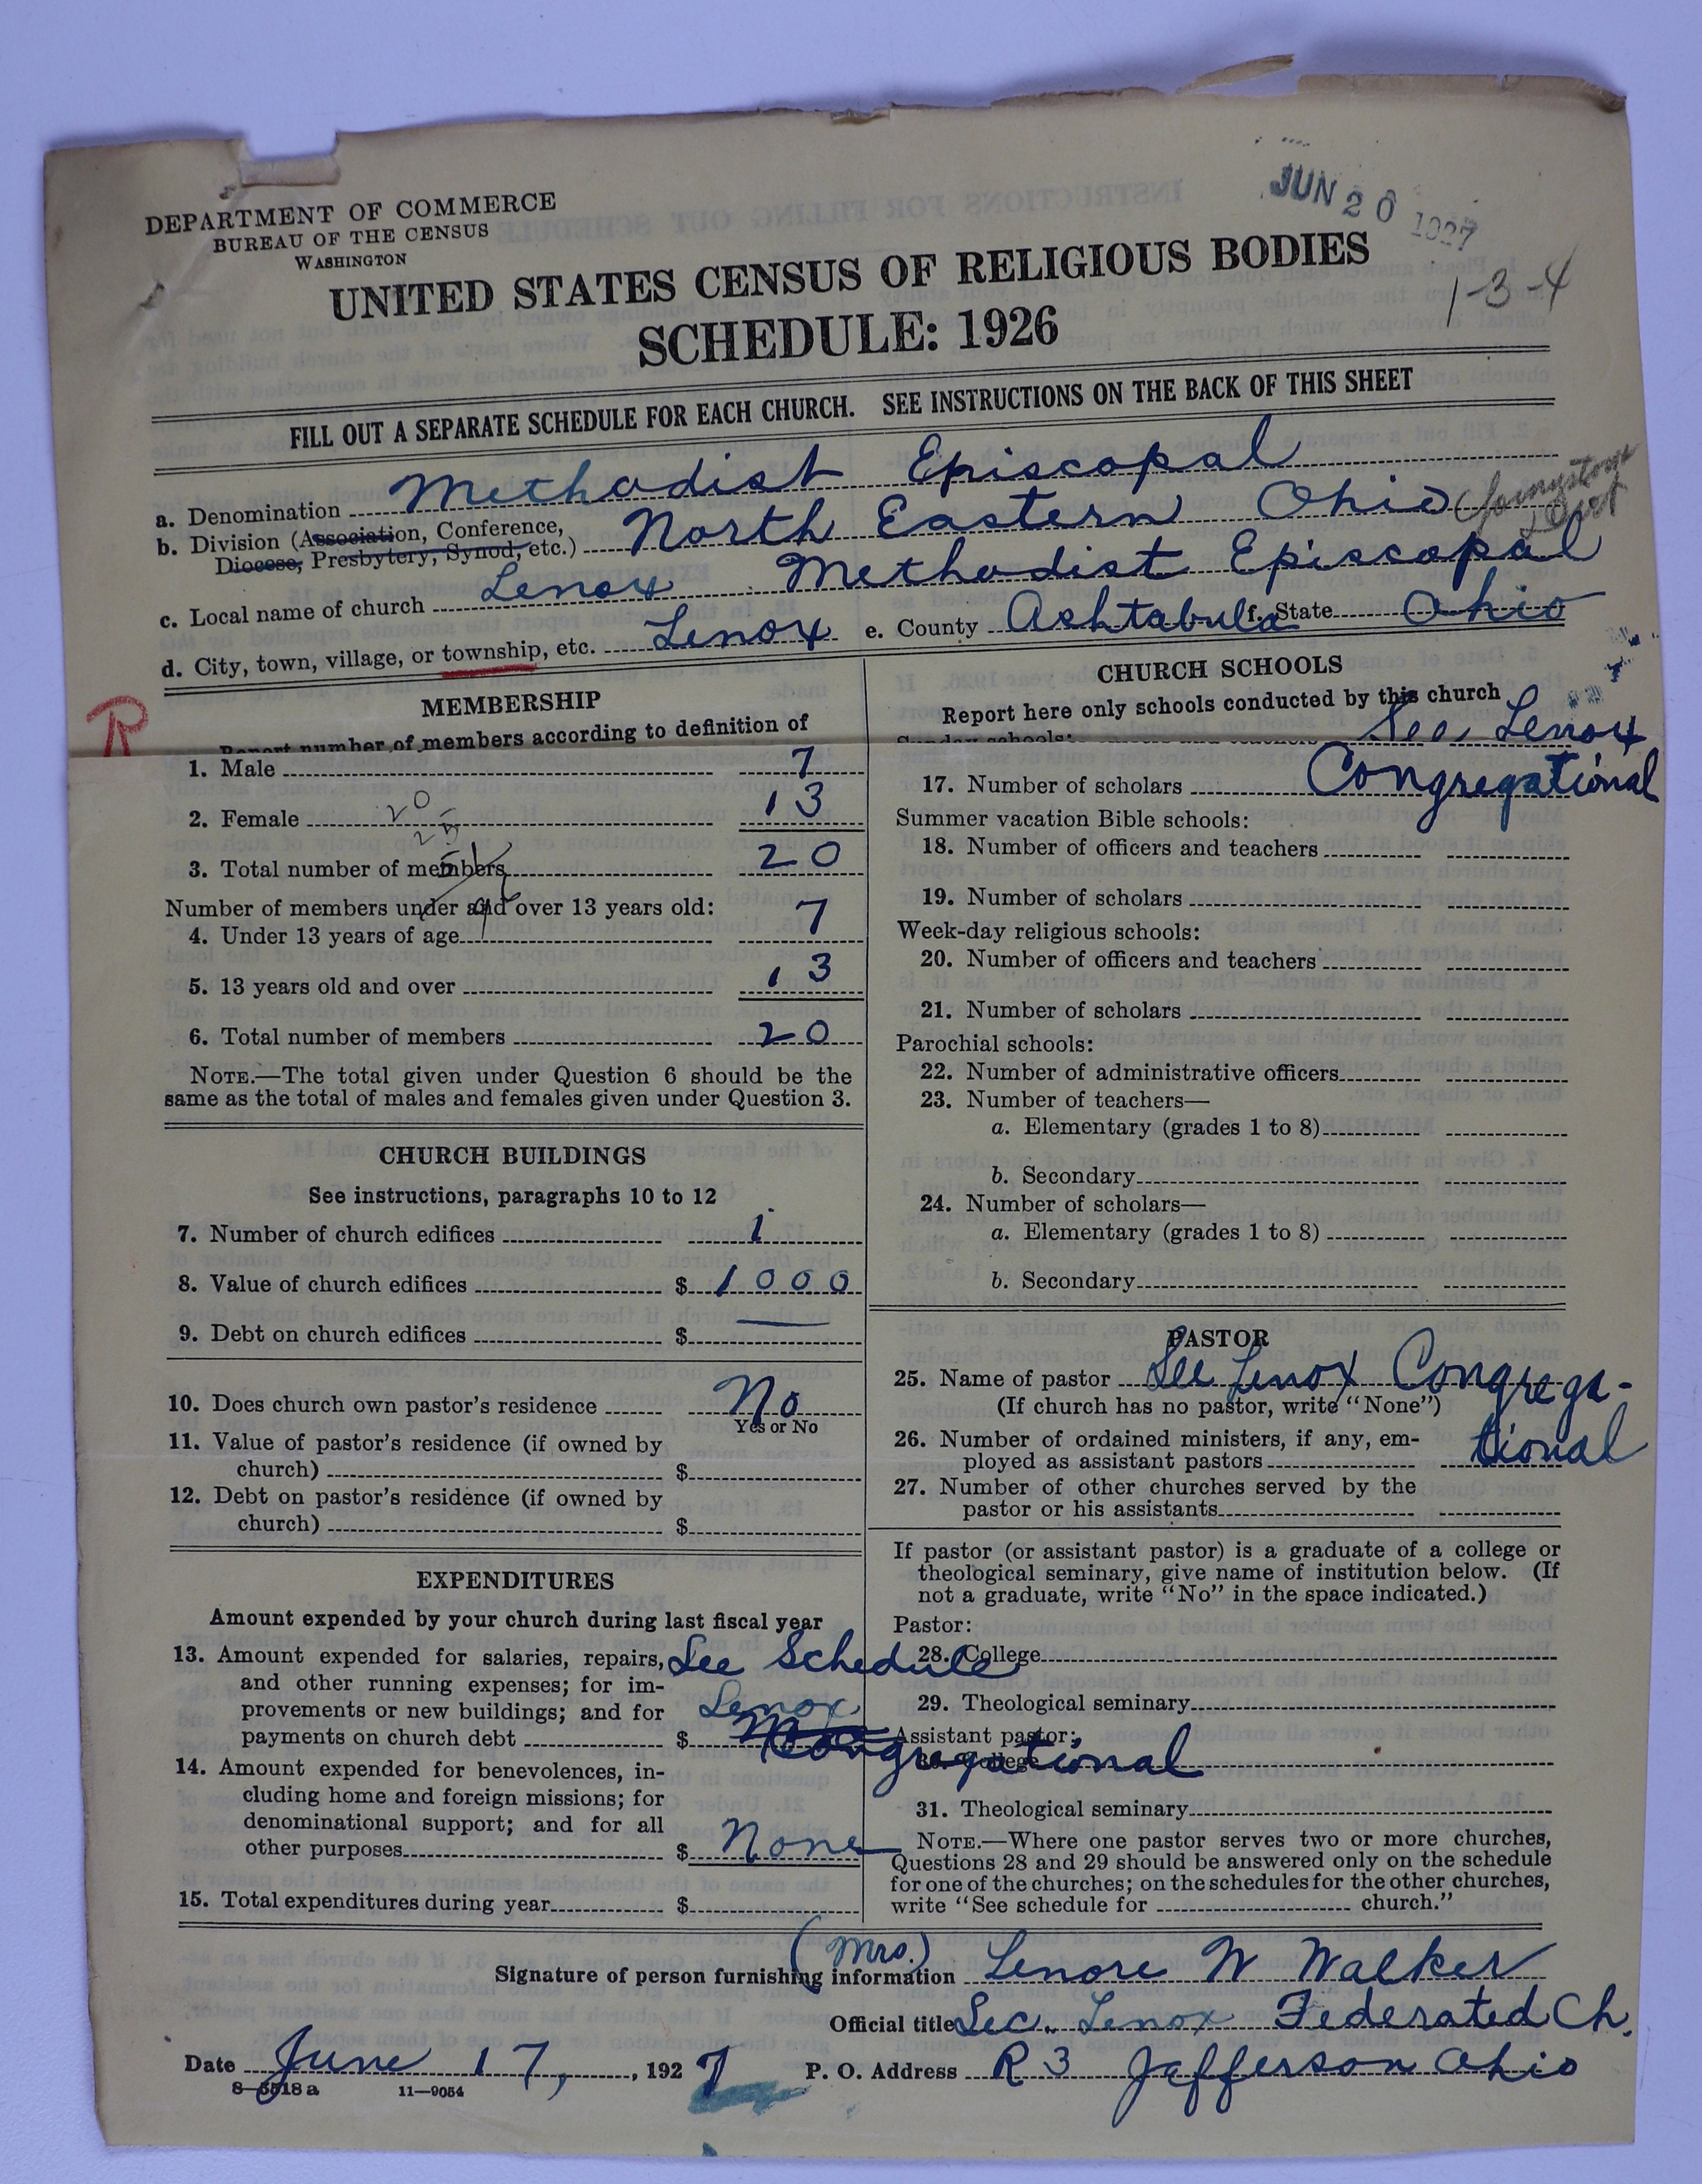 JUN 20 1927
1-3-4
DEPARTMENT OF COMMERCE
BUREAU OF THE CENSUS
WASHINGTON
UNITED STATES CENSUS OF RELIGIOUS BODIES
SCHEDULE: 1926
FILL OUT A SEPARATE SCHEDULE FOR EACH CHURCH. SEE INSTRUCTIONS ON THE BACK OF THIS SHEET
a. Denomination Methodist Episcopal
b. Division (Association, Conference, Diocese, Presbytery, Synod, etc.) North Eastern Ohio (Youngstown Dist
c. Local name of church Lenox Methodist Episcopal
d. City, town, village, or township, etc. Lenox e. County Ashtabula f. State Ohio
R
MEMBERSHIP
Report number of members according to definition of
1. Male 7
2. Female 13
20
3. Total number of members 20
Number of members under and over 13 years old:
4. Under 13 years of age 7
5. 13 years old and over 13
6. Total number of members 20
NOTE.—The total given under Question 6 should be the
same as the total of males and females given under Question 3.
CHURCH BUILDINGS
See instructions, paragraphs 10 to 12
7. Number of church edifices 1
8. Value of church edifices $ 1000
9. Debt on church edifices $ —
10. Does church own pastor's residence No
Yes or No
11. Value of pastor's residence (if owned by
church) $
12. Debt on pastor's residence (if owned by
church) $
EXPENDITURES
Amount expended by your church during last fiscal year
13. Amount expended for salaries, repairs, See Schedule
and other running expenses; for im-
provements or new buildings; and for Lenox
payments on church debt $ Congregational
14. Amount expended for benevolences, in-
cluding home and foreign missions; for
denominational support; and for all
other purposes $ None
15. Total expenditures during year $
CHURCH SCHOOLS
Report here only schools conducted by this church
Sunday schools: See Lenox
17. Number of scholars Congregational
Summer vacation Bible schools:
18. Number of officers and teachers
19. Number of scholars
Week-day religious schools:
20. Number of officers and teachers
21. Number of scholars
Parochial schools:
22. Number of administrative officers
23. Number of teachers—
a. Elementary (grades 1 to 8)
b. Secondary
24. Number of scholars—
a. Elementary (grades 1 to 8)
b. Secondary
PASTOR
25. Name of pastor See Lenox Congrega-
(If church has no pastor, write "None")
26. Number of ordained ministers, if any, em- tional
ployed as assistant pastors
27. Number of other churches served by the
pastor or his assistants
If pastor (or assistant pastor) is a graduate of a college or
theological seminary, give name of institution below. (If
not a graduate, write "No" in the space indicated.)
Pastor:
28. College
29. Theological seminary
Assistant pastor:
30. College
31. Theological seminary
NOTE.—Where one pastor serves two or more churches,
Questions 28 and 29 should be answered only on the schedule
for one of the churches; on the schedules for the other churches,
write "See schedule for church."
Signature of person furnishing information (Mrs.) Lenore W Walker
Official title Sec. Lenox Federated Ch.
Date June 17, 1927 P. O. Address R 3 Jefferson Ohio
8—5518a 11—9054